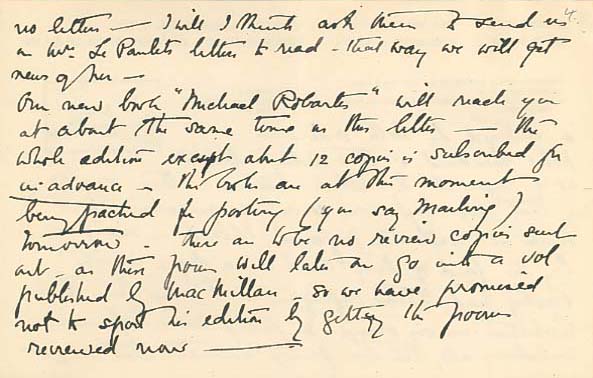 4.
no letters — I will I think ask them to send us
on Mrs Le Paulets letters to read - that way we will get
news of her —
Our new book "Michael Robartes" will reach you
at about the same time as this letter — the
whole edition except about 12 copies is subscribed for
in advance — the books are at this moment
being packed for posting (you say Mailing)
tomorrow - there are to be no review copies sent
out - as these poems will later on go into a vol
published by MacMillan - so we have promised
not to spoil his edition by getting the poems
reviewed now —